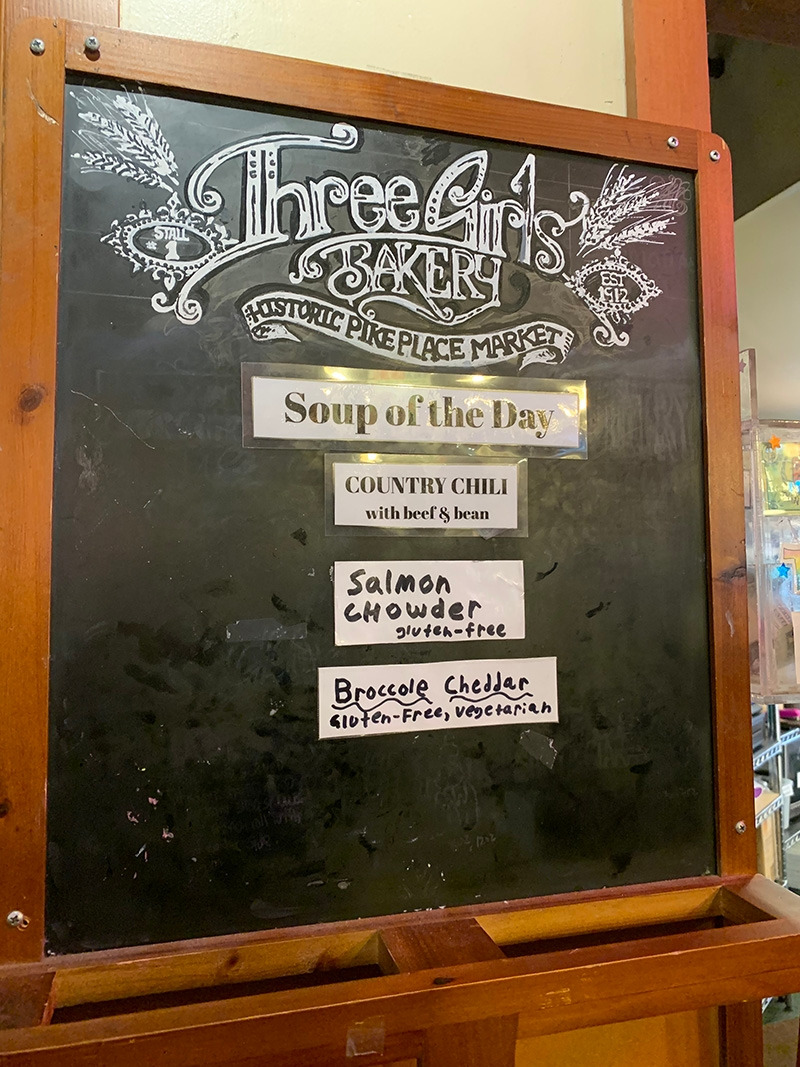 Three Girls
BAKERY
STALL
# 1
EST
1912
HISTORIC PIKE PLACE MARKET
Soup of the Day
COUNTRY CHILI
with beef & bean
Salmon
CHowder
gluten-free
Broccole Cheddar
Gluten-Free, vegetarian